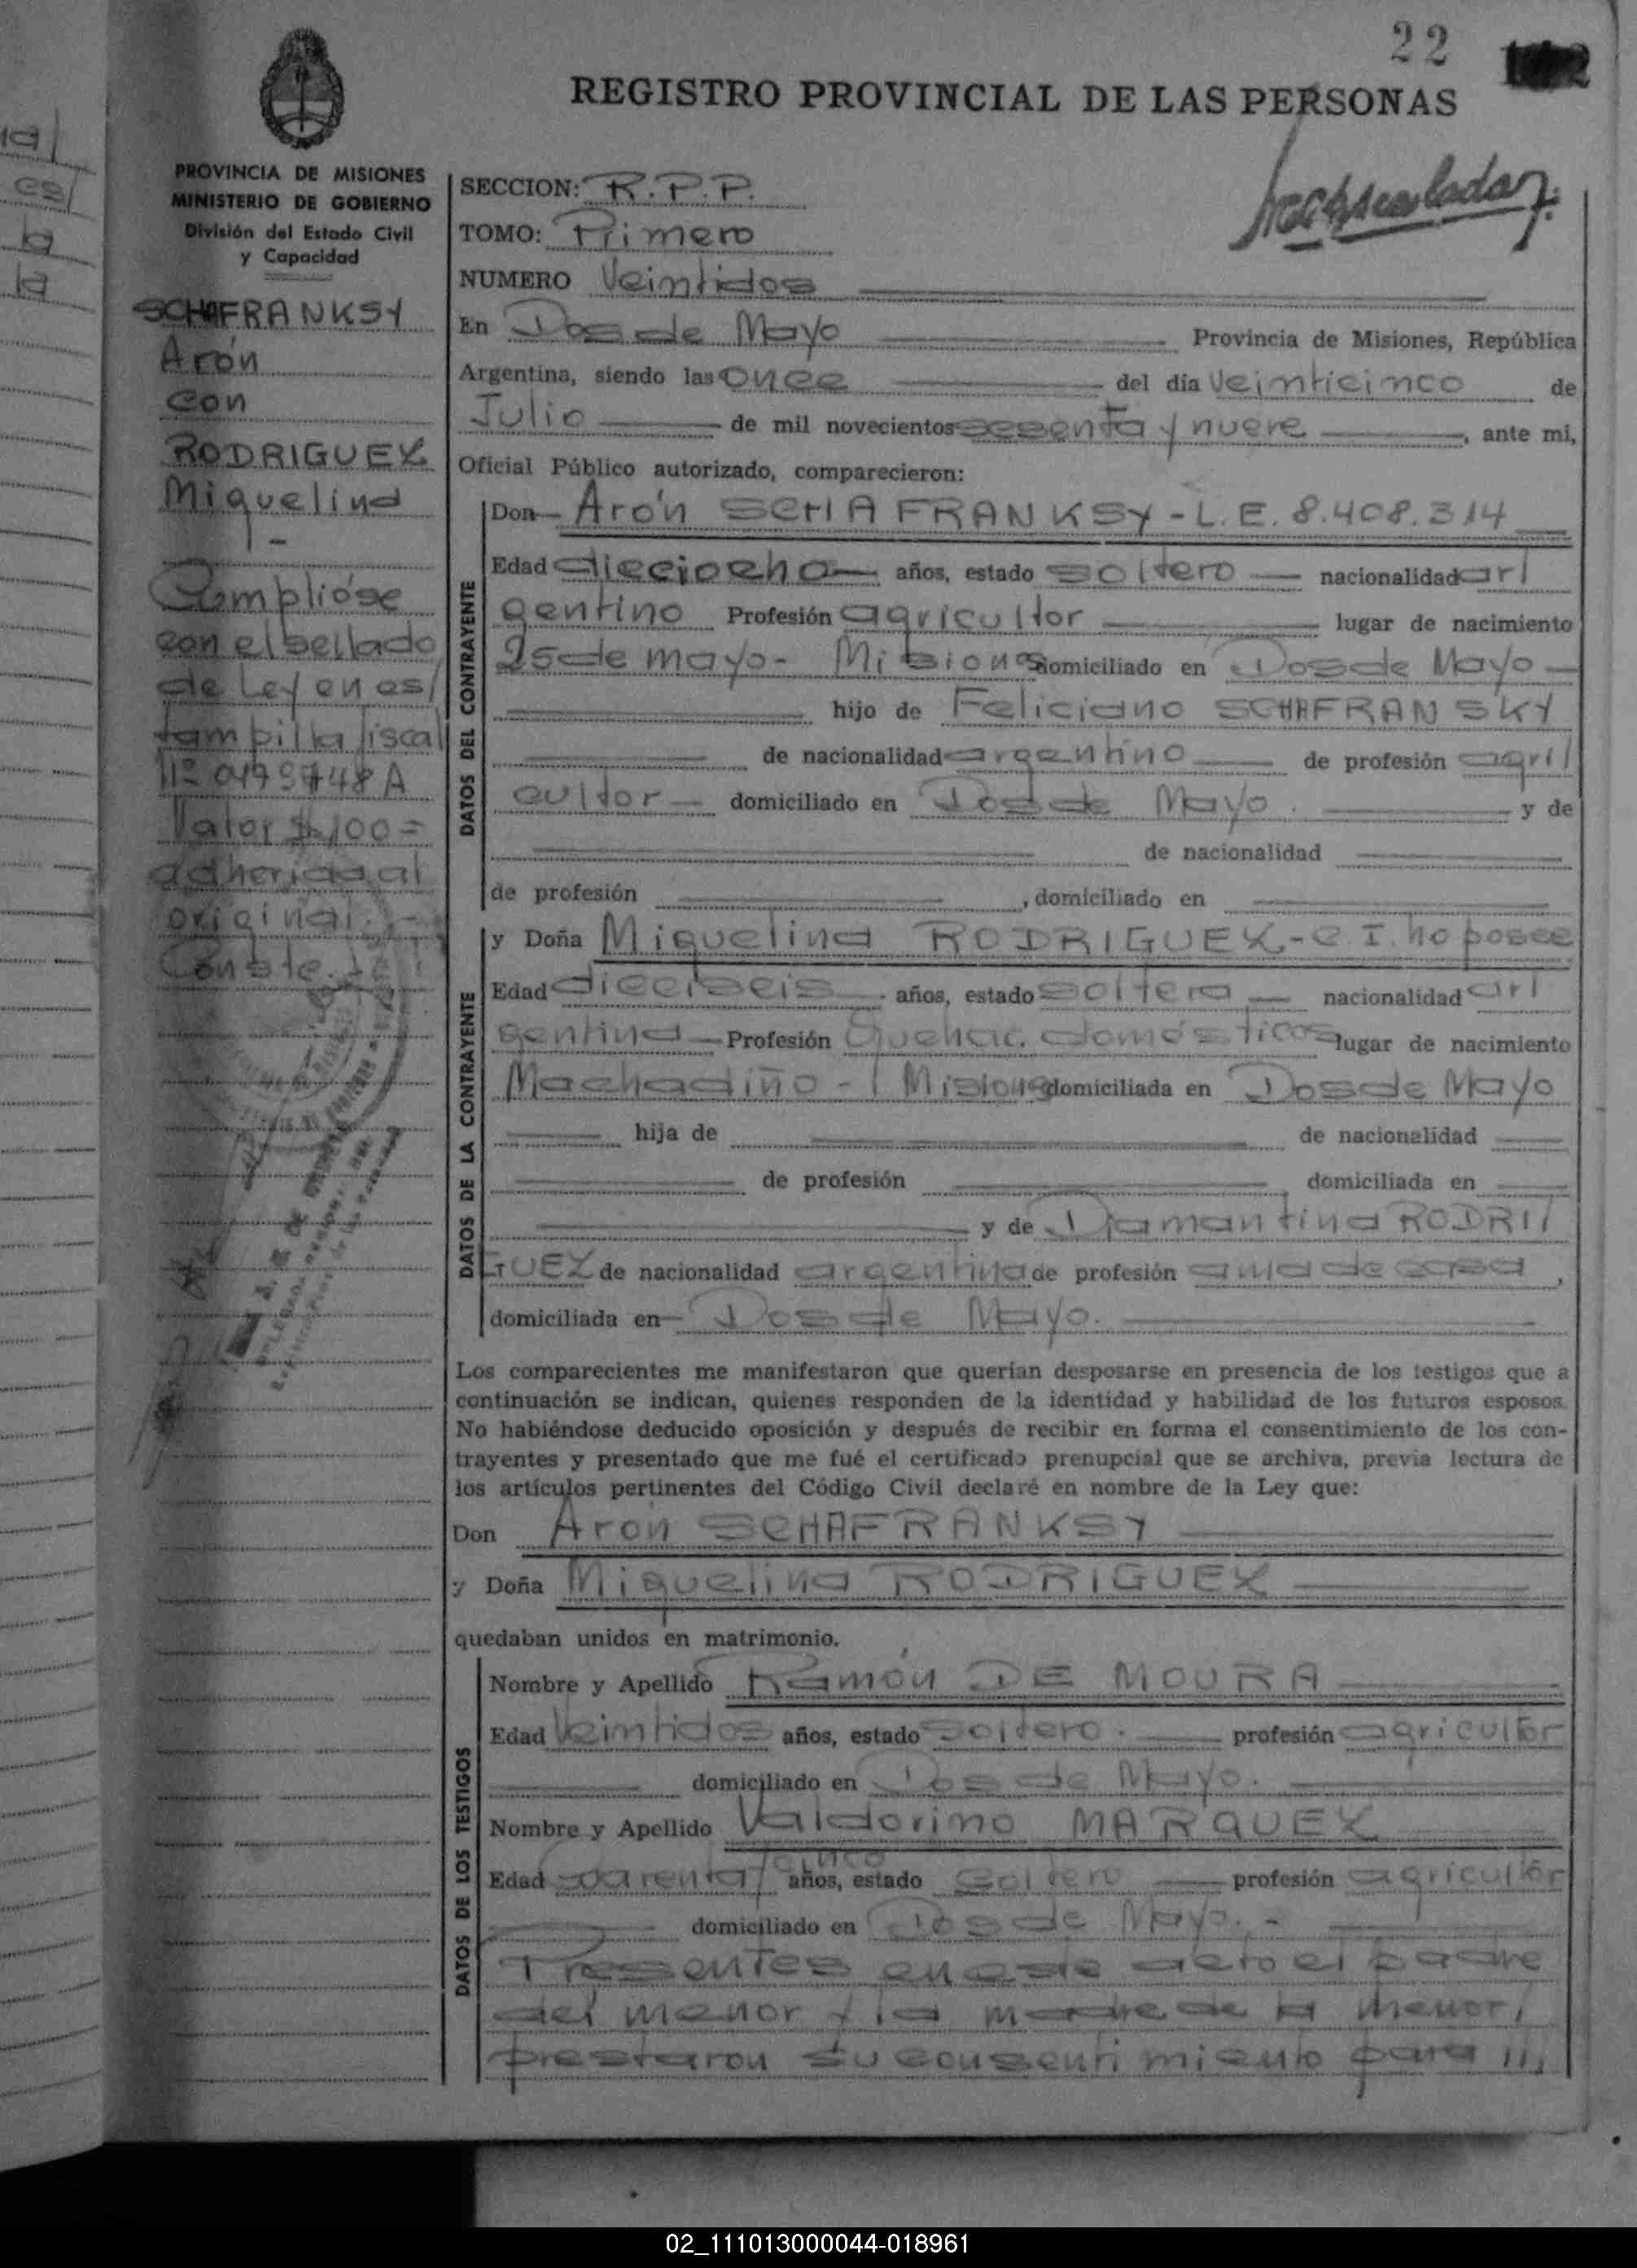 22
REGISTRO PROVINCIAL DE LAS PERSONAS
PROVINCIA DE MISIONES
MINISTERIO DE GOBIERNO
División del Estado Civil
y Capacidad
SCHAFRANKSY
Arón
con
RODRIGUEZ
Miguelina
Cumplióse
con el sellado
de Ley en es/
tampilla fiscal
Nº
Valor $ 100=
adherida al
original.
Conste.
SECCION: R.P.P.
TOMO: Primero
NUMERO Veintidos
En Dos de Mayo Provincia de Misiones, República
Argentina, siendo las once del día veinticinco de
Julio de mil novecientos sesenta y nueve, ante mi,
Oficial Público autorizado, comparecieron:
DATOS DEL CONTRAYENTE
Don Arón SCHAFRANKSY - L.E. 8.408.314
Edad dieciocho años, estado soltero nacionalidad ar/
gentino Profesión agricultor lugar de nacimiento
25 de mayo - Misiones domiciliado en Dos de Mayo
hijo de Feliciano SCHAFRANSKY
de nacionalidad argentino de profesión agri/
cultor domiciliado en Dos de Mayo. y de
de nacionalidad
de profesión , domiciliado en
DATOS DE LA CONTRAYENTE
y Doña Miguelina RODRIGUEZ - C.I. no posee
Edad dieciseis años, estado soltera nacionalidad ar/
gentina Profesión Quehac. domésticos lugar de nacimiento
Machadiño - Misiones domiciliada en Dos de Mayo
hija de de nacionalidad
de profesión domiciliada en
y de Diamantina RODRI/
GUEZ de nacionalidad argentina de profesión ama de casa,
domiciliada en Dos de Mayo.
Los comparecientes me manifestaron que querían desposarse en presencia de los testigos que a
continuación se indican, quienes responden de la identidad y habilidad de los futuros esposos.
No habiéndose deducido oposición y después de recibir en forma el consentimiento de los con-
trayentes y presentado que me fué el certificado prenupcial que se archiva, previa lectura de
los artículos pertinentes del Código Civil declaré en nombre de la Ley que:
Don Arón SCHAFRANKSY
y Doña Miguelina RODRIGUEZ
quedaban unidos en matrimonio.
DATOS DE LOS TESTIGOS
Nombre y Apellido Ramón DE MOURA
Edad Veintidos años, estado soltero. profesión agricultor
domiciliado en Dos de Mayo.
Nombre y Apellido Valdorino MARQUEZ
Edad cuarenta y cinco años, estado soltero profesión agricultor
domiciliado en Dos de Mayo. -
Presentes en este acto el padre
del menor y la madre de la menor,
prestaron su consentimiento para ///
02_111013000044-018961